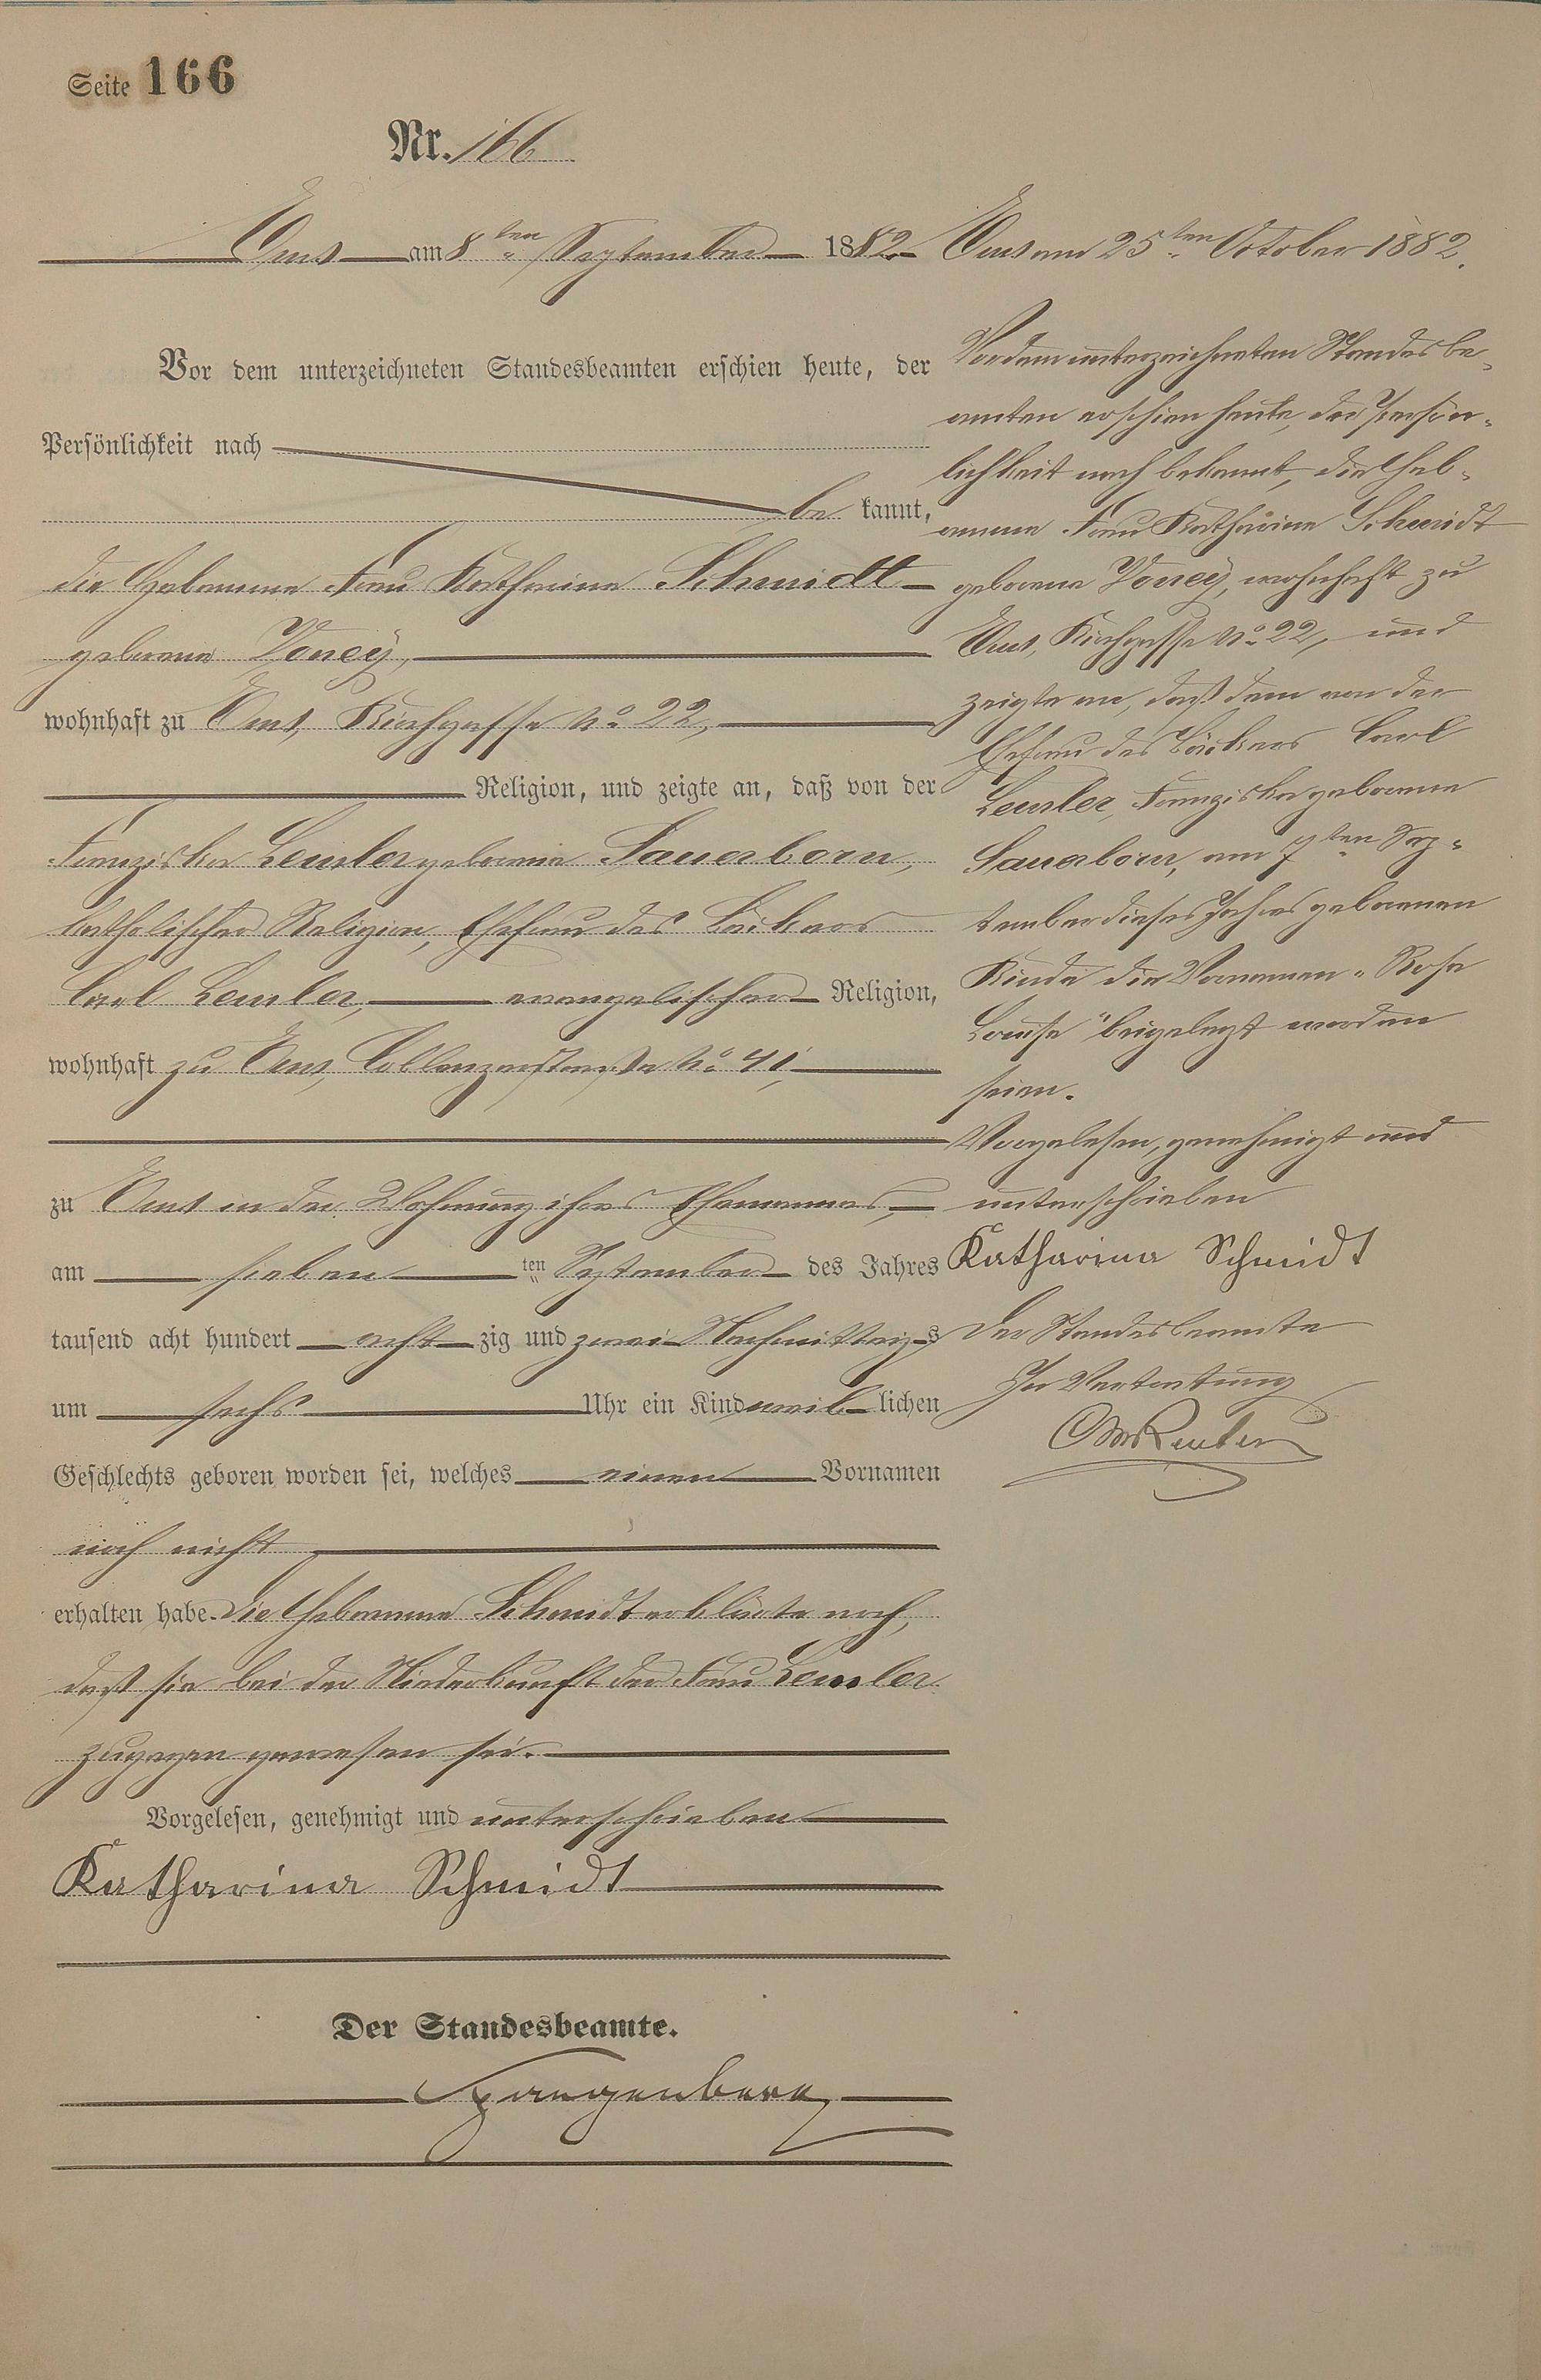 Seite 166
Nr. 166
Ems am 8ten September 1882
Vor dem unterzeichneten Standesbeamten erschien heute, der
Persönlichkeit nach
be kannt,
die Hebamme Frau Katharina Schmidt
geborene Voney,
wohnhaft zu Ems, Kirchgasse No 22,
Religion, und zeigte an, daß von der
Franziska Lemler geborene Sauerborn,
katholischer Religion, Ehefrau des Bäckers
Carl Lemler, evangelischer Religion,
wohnhaft zu Ems, Coblenzerstraße No 41,
zu Ems in der Wohnung ihres Ehemannes,
am sieben ten September des Jahres
tausend acht hundert acht zig und zwei Nachmittags
um sechs Uhr ein Kind weib lichen
Geschlechts geboren worden sei, welches einen Vornamen
noch nicht
erhalten habe. Die Hebamme Schmidt erklärte noch,
daß sie bei der Niederkunft der Frau Lemler
zugegen gewesen sei.
Vorgelesen, genehmigt und unterschrieben
Katharina Schmidt
Der Standesbeamte.
Spangenberg
Ems am 25ten October 1882.
Vor dem unterzeichneten Standesbe-
amten erschien heute, der Persön-
lichkeit nach bekannt, die Heb-
amme Frau Katharina Schmidt
geborene Voney, wohnhaft zu
Ems, Kirchgasse No 22, und
zeigte an, daß dem von der
Ehefrau des Bäckers Carl
Lemler, Franziska geborene
Sauerborn, am 7ten Sep-
tember dieses Jahres geborenen
Kinde die Vornamen "Rosa
Louise" beigelegt worden
seien.
Vorgelesen, genehmigt und
unterschrieben
Katharina Schmidt
Der Standesbeamte
In Vertretung
Reuter